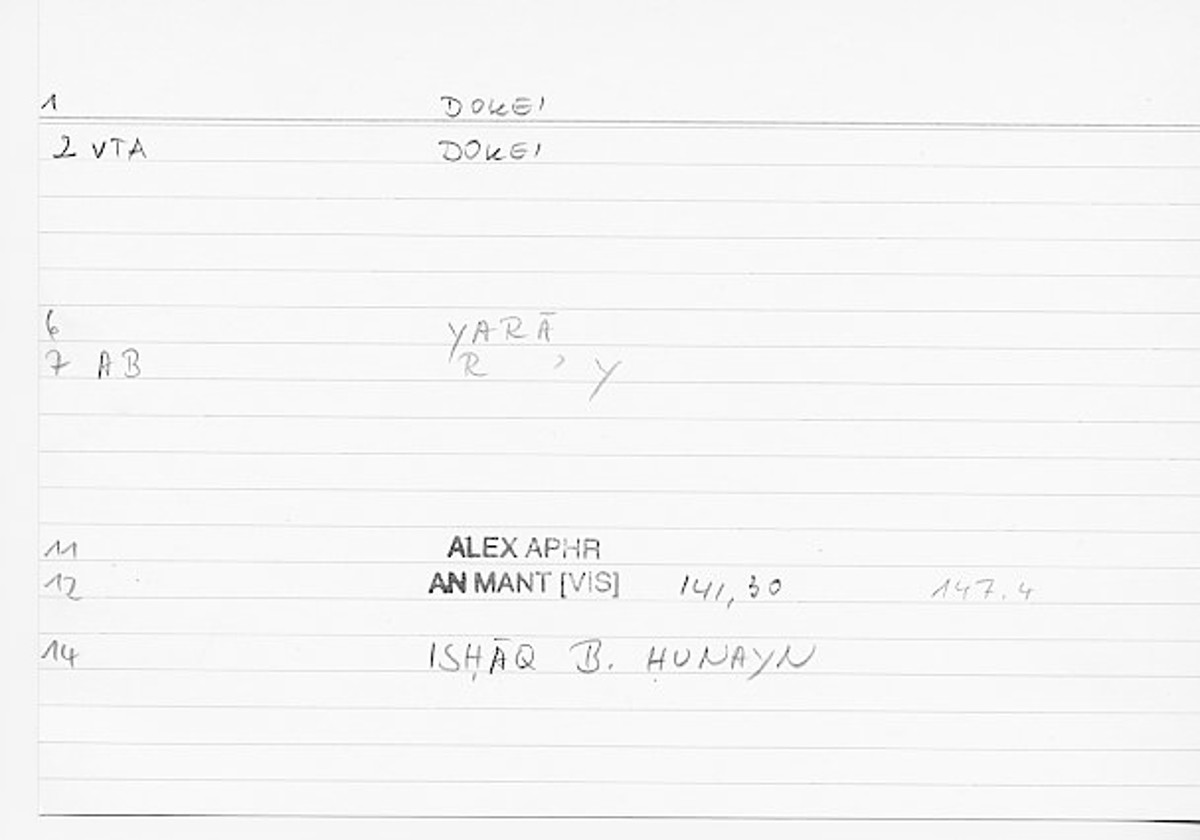 1 DOKEI
2 VTA DOKEI
6 YARĀ
7 AB R ʾ Y
11 ALEX APHR
12 AN MANT [VIS] 141,30 147.4
14 ISḤĀQ B. ḤUNAYN